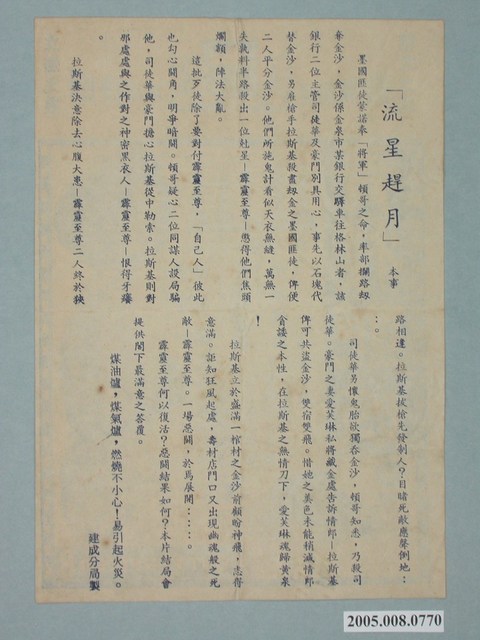 「流星趕月」 本事
墨國匪徒蒙諾奉「將軍」頓哥之命，率部攔路刼
奪金沙，金沙係金泉市某銀行交驛車往格林山者，該
銀行二位主管司徒華及豪門別具用心，事先以石塊代
替金沙，另雇槍手拉斯基殺盡刼金之墨國匪徒，俾便
二人平分金沙。他們所施鬼計看似天衣無縫，萬無一
失孰料半路殺出一位尅星—霹靂至尊—憊得他們焦頭
爛額，陣法大亂。
這批歹徒除了要對付霹靂至尊，「自己人」彼此
也勾心鬪角，明爭暗鬪。頓哥疑心二位同謀人設局騙
他，司徒華與豪門擔心拉斯基從中勒索。拉斯基則對
那處處與之作對之神密黑衣人—霹靂至尊—恨得牙癢
。
拉斯基決意除去心腹大患—霹靂至尊二人終於狹
路相逢。拉斯基拔槍先發制人？目睹死敵應聲倒地：
：。
司徒華另懷鬼胎欲獨吞金沙，頓哥知悉，乃殺司
徒華。豪門之妻愛芙琳私將藏金處告訴情郎—拉斯基
俾可共盜金沙，雙宿雙飛。惜她之美色未能稍減情郎
貪婪之本性，在拉斯基之無情刀下，愛芙琳魂歸黃泉
！
拉斯基立於盛滿一棺材之金沙前顧盼神飛，志得
意滿。詎知狂風起處，壽材店門口又出現幽魂般之死
敵—霹靂至尊。一場惡鬪，於焉展開：：：。
霹靂至尊何以復活？惡鬪結果如何？本片結局會
提供閣下最滿意之答覆。
煤油爐，煤氣爐，燃燒不小心！易引起火災。
建成分局製
2005.008.0770